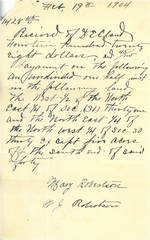 Feb, 19th 1904
$1428.00
Received of H E Cloud
fourteen Hundred Twenty
eight dollars as the
Payment on the following
an undivided one half int
in the following land
The West 1/2 of the North
east 1/4 of Sec 31 thirty one
and the North east 1/4 of
the North west 1/4 of Sec 30
thirty except five acres
off the south end of said
forty
Mary Robertson
J Robertson